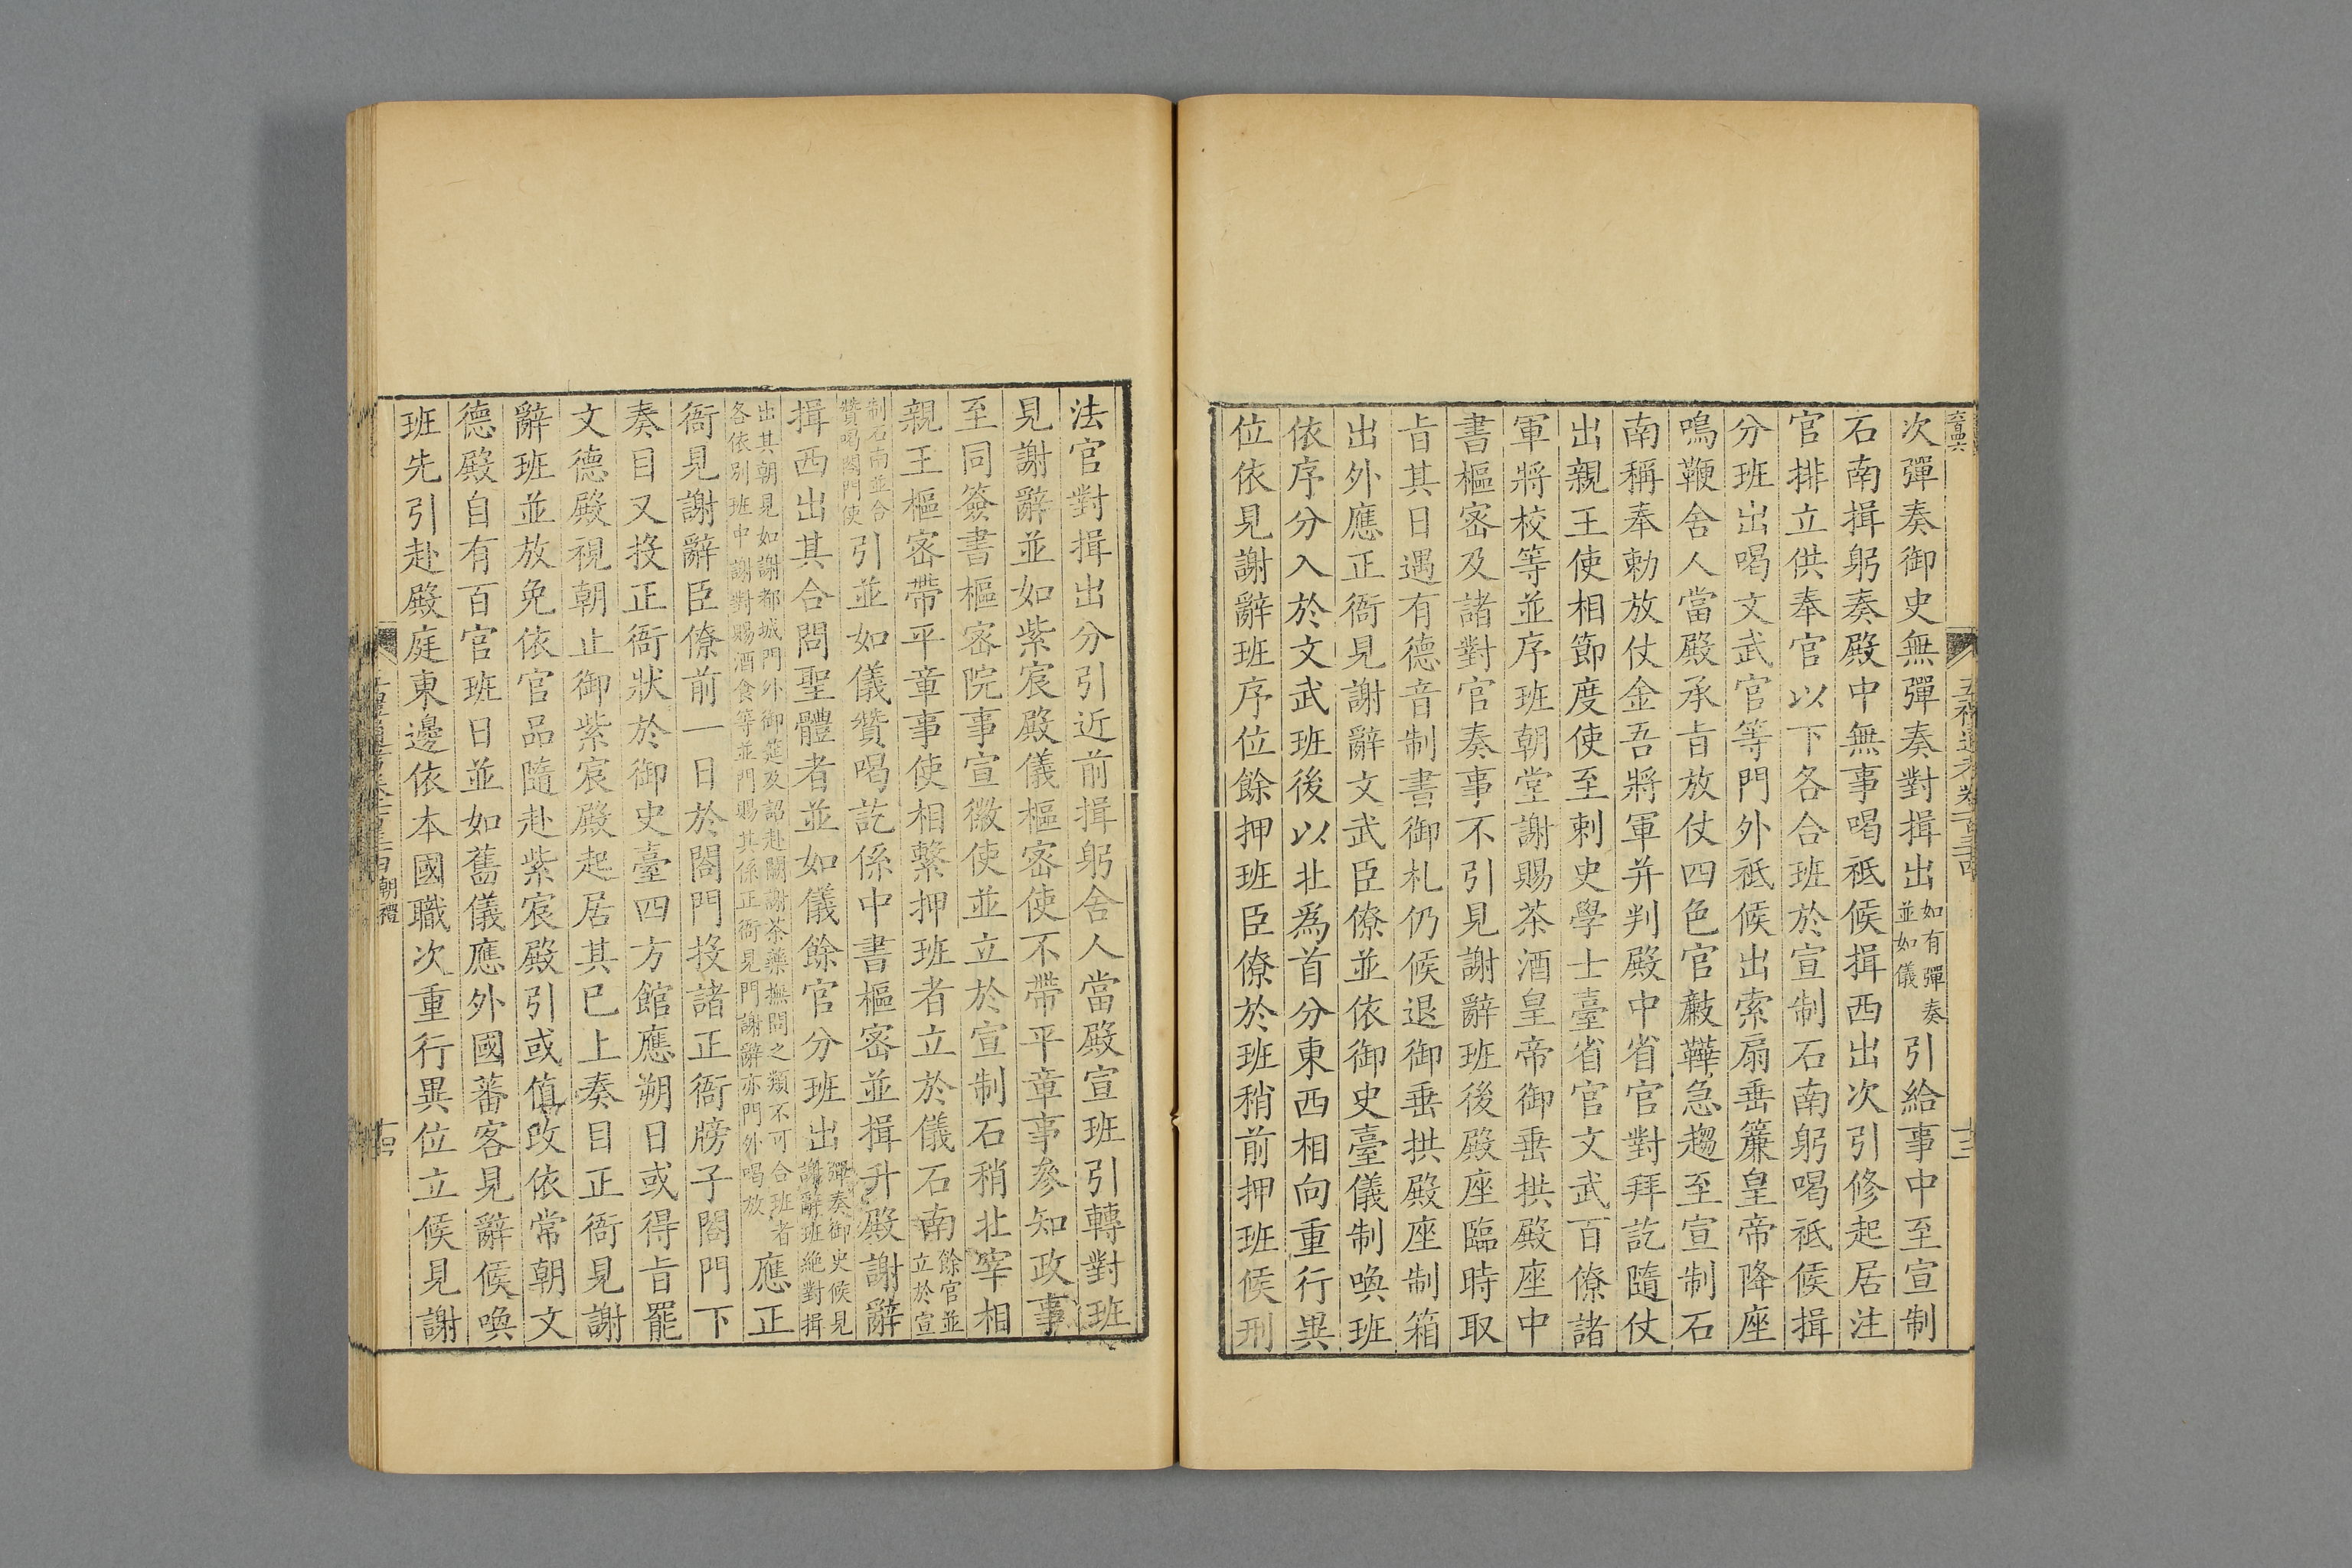 次彈奏御史無彈奏對揖出如有彈奏並如儀引給事中至宣制
石南揖躬奏殿中無事喝祗候揖西出次引修起居注
官排立供奉官以下各合班於宣制石南躬喝祗候揖
分班出喝文武官等門外祗候出索扇垂簾皇帝降座
鳴鞭舍人當殿承旨放仗四色官𪨗鞾急趨至宣制石
南稱奉勅放仗金吾將軍并判殿中省官對拜訖隨仗
出親王使相節度使至刺史學士臺省官文武百僚諸
軍將校等並序班朝堂謝賜茶酒皇帝御垂拱殿座中
書樞密及諸對官奏事不引見謝辭班後殿座臨時取
旨其日遇有德音制書御札仍候退御垂拱殿座制箱
出外應正衙見謝辭文武臣僚並依御史臺儀制喚班
依序分入於文武班後以北爲首分東西相向重行異
位依見謝辭班序位餘押班臣僚於班稍前押班候刑
法官對揖出分引近前揖躬舍人當殿宣班引轉對班
見謝辭並如紫宸殿儀樞密使不帶平章事參知政事
至同簽書樞密院事宣徽使並立於宣制石稍北宰相
親王樞密帶平章事使相繫押班者立於儀石南餘官並立於宣
制石南並合贊喝閤門使引並如儀贊喝訖係中書樞密並揖升殿謝辭
揖西出其合問聖體者並如儀餘官分班出彈奏御史候見謝辭班絕對揖
出其朝見如謝都城門外御筵及詔赴闕謝茶藥撫問之類不可合班者各依別班中謝對賜酒食等並門賜其係正衙見門謝辭亦門外喝放應正
衙見謝辭臣僚前一日於閤門投諸正衙牓子閤門下
奏目又投正衙狀於御史臺四方館應朔日或得旨罷
文德殿視朝止御紫宸殿起居其已上奏目正衙見謝
辭班並放免依官品隨赴紫宸殿引或值改依常朝文
德殿自有百官班日並如舊儀應外國蕃客見辭候喚
班先引赴殿庭東邊依本國職次重行異位立候見謝
朝禮